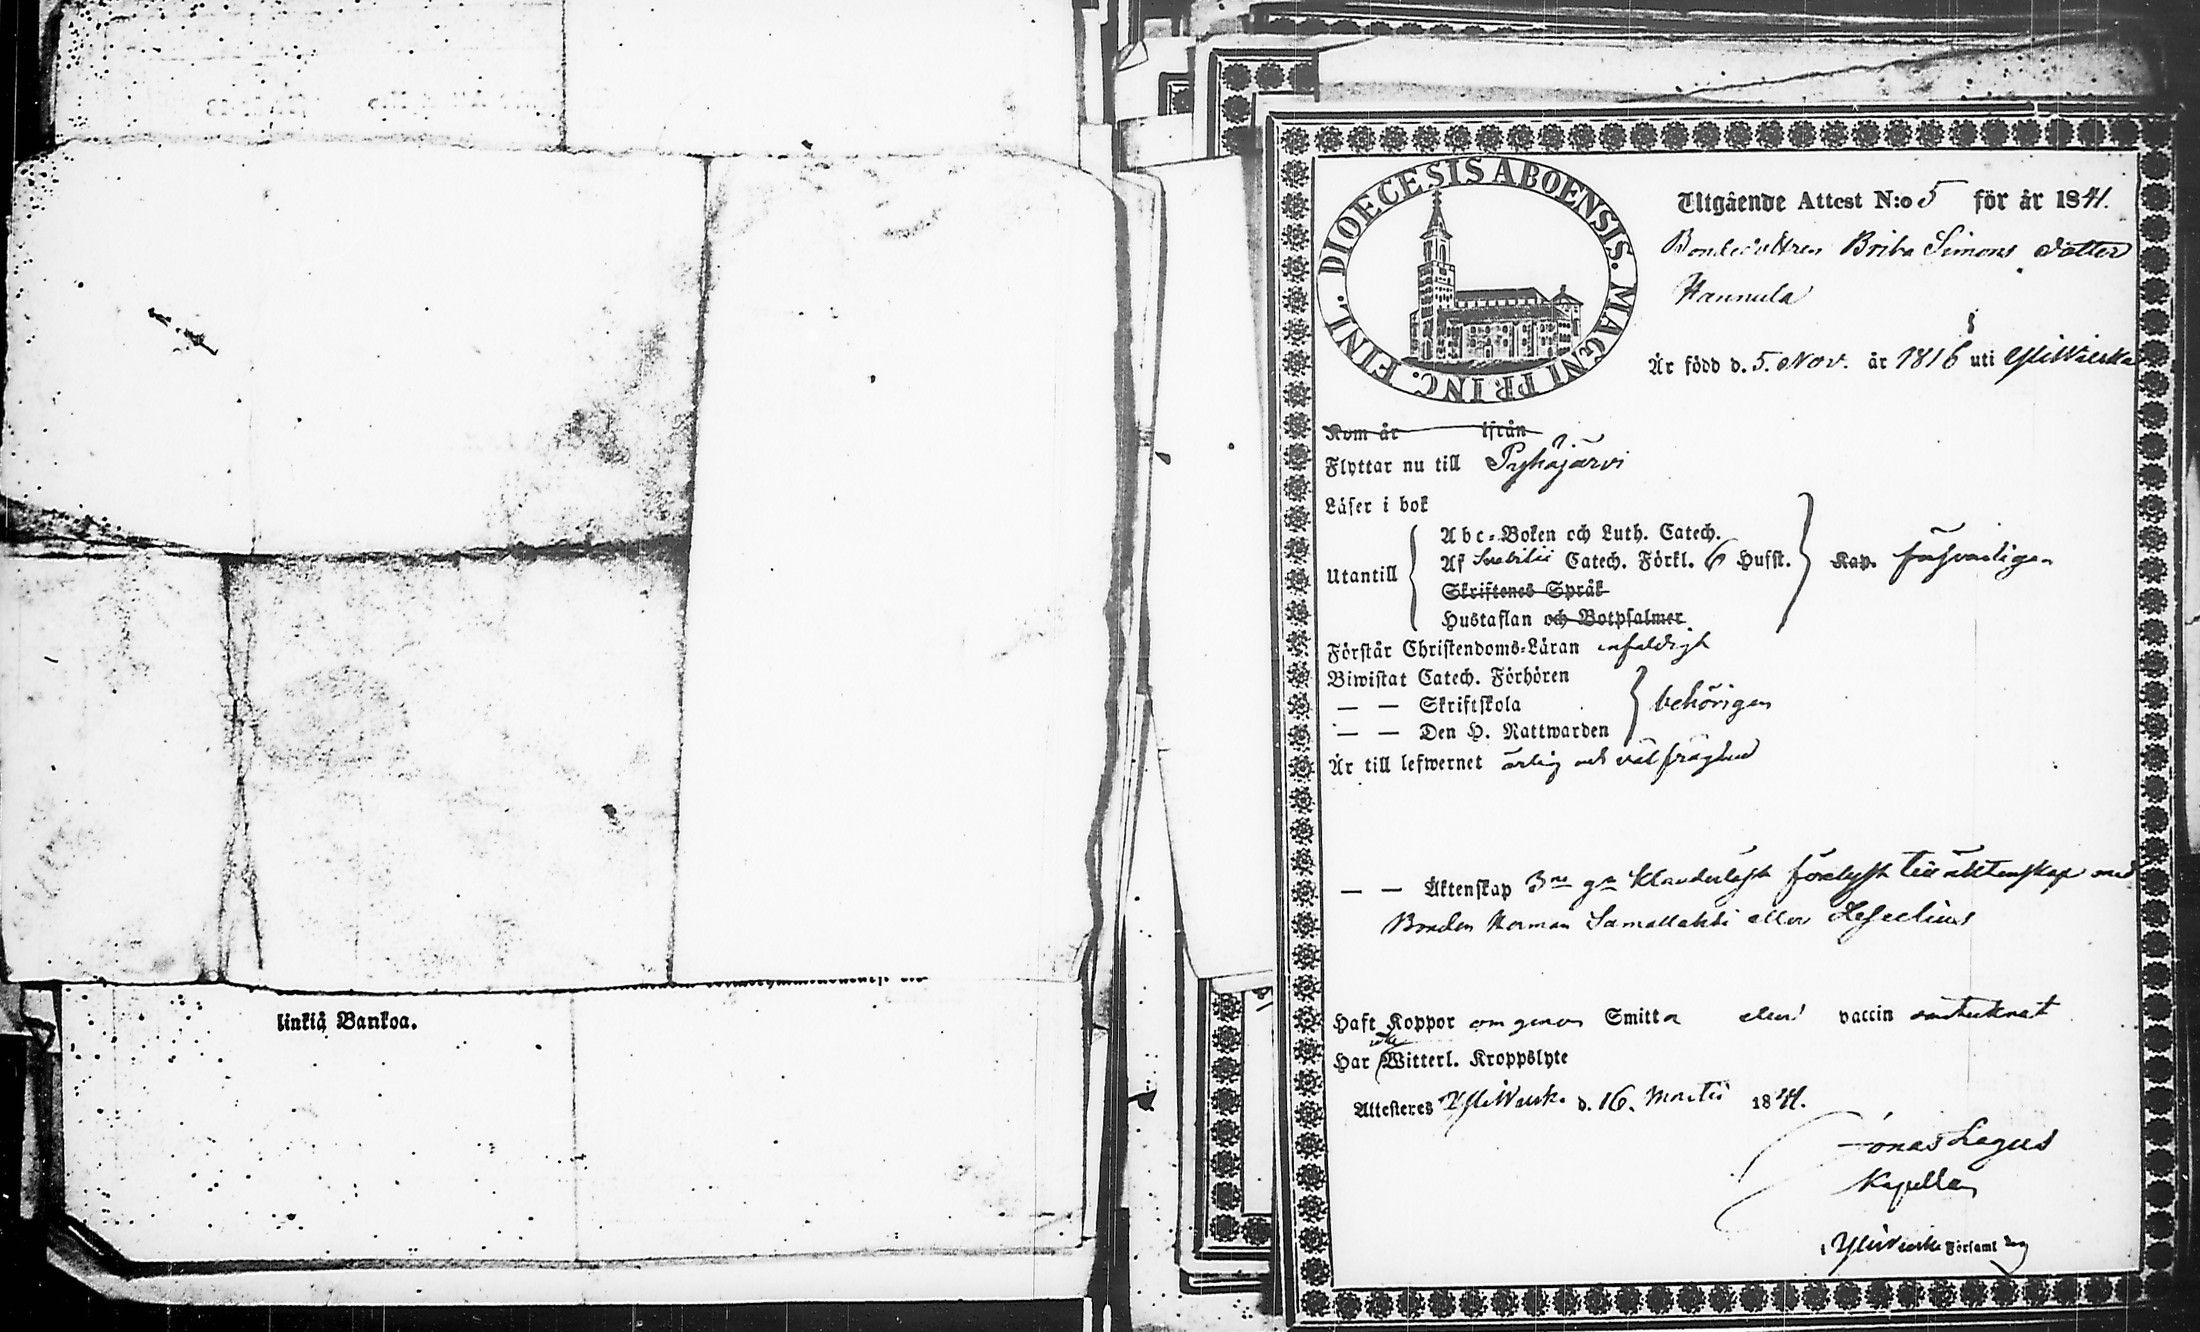 linkiä Bankoa.
DIOECESIS ABOENSIS. MAGNI PRINC. FINL.
Utgående Attest N:o 5 för år 1841.
Bondedottren Brita Simons dotter
Hannula
Är född d. 5. Nov. år 1816 uti Ylivieska
Kom år ifrån
Flyttar nu till Pyhäjärvi
Läser i bok
Abc-Boken och Luth. Catech.
Utantill Af Svebilii Catech. Förkl. 6 Hufst. Kap. försvarligen
Skriftenes Språk
Hustaflan och Botpsalmer
Förstår Christendoms-Läran enfaldigt
Biwistat Catech. Förhören
— — Skriftskola behörigen
— — Den H. Nattwarden
Är till lefwernet ärlig och välfrägdad
— — Äktenskap 3ne gr klanderlöst förelyst till äktenskap med
Bonden Herman eller
Haft Koppor om genom Smitta eller vaccin obekant
Har icke Witterl. Kroppslyte
Attesteres Ylivieska d. 16. Martii 1841.
Jonas Lagus
Kapellan
i Ylivieska Församl